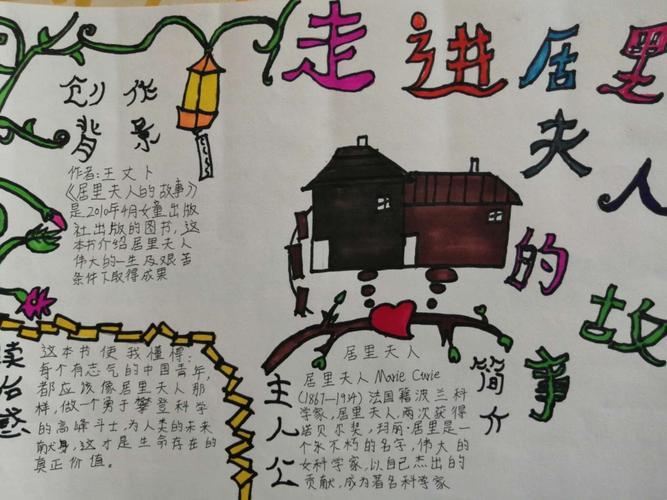 走进居里
夫人
的故
事
创作
背景
作者:王丈卜
《居里夫人的故事》
是2010年4月女童出版
社出版的图书,这
本书介绍居里夫人
伟大的一生及艰苦
条件下取得成果
读后感
这本书使我懂得:
每个有志气的中国青年,
都应该像居里夫人那
样,做一个勇于攀登科学
的高峰斗士,为人类的未来
献身,这才是生命存在的
真正价值。
主人公
简介
居里夫人
居里夫人Marie Curie
(1867—1934)法国籍波兰科
学家,居里夫人,两次获得
诺贝尔奖,玛丽·居里是一
个永不朽的名字,伟大的
女科学家,以自己杰出的
贡献,成为著名科学家